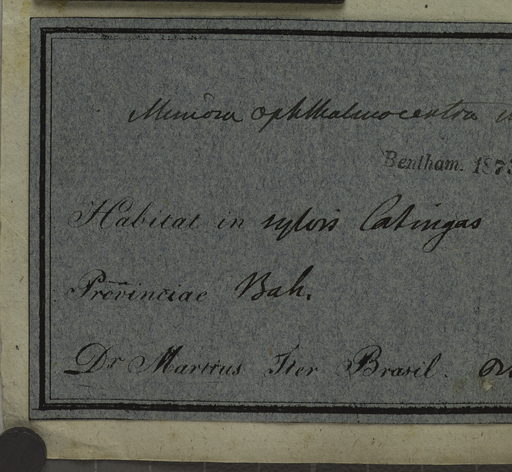 Mimosa ophthalmocentra
Bentham. 187
Habitat in sylvis Catingas
Provinciae Bah.
Dr. Martius Iter Brasil.